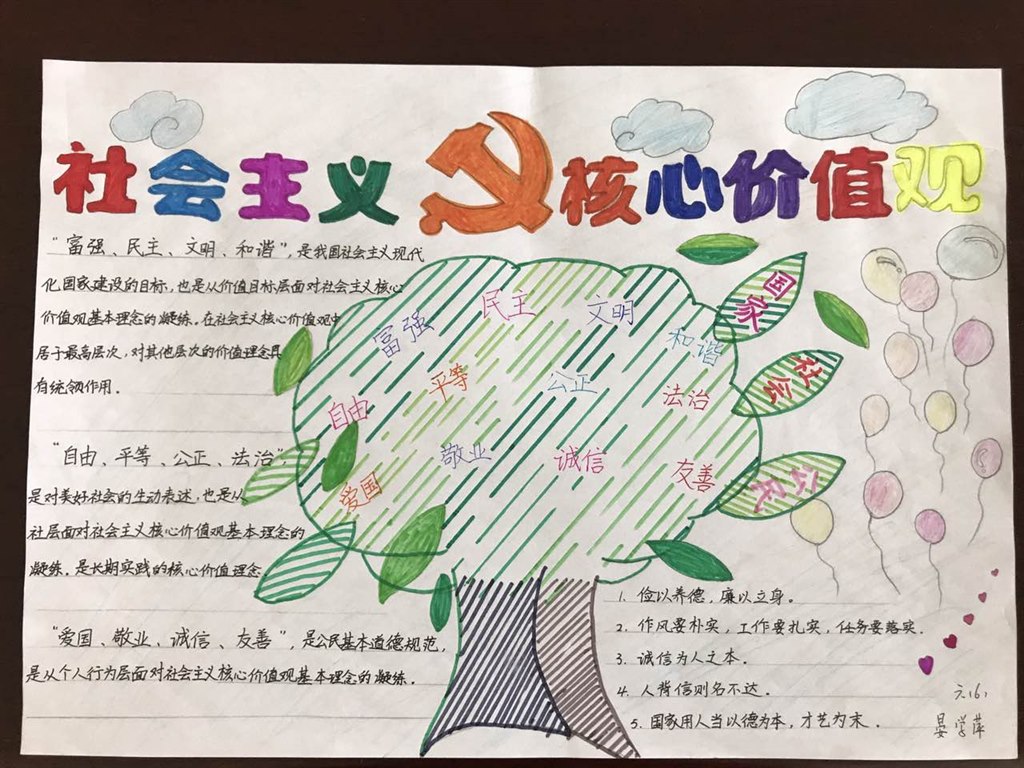 社会主义核心价值观
“富强、民主、文明、和谐”，是我国社会主义现代
化国家建设的目标，也是从价值目标层面对社会主义核心
价值观基本理念的凝练。在社会主义核心价值观中
居于最高层次，对其他层次的价值理念具
有统领作用。
“自由、平等、公正、法治”，
是对美好社会的生动表述，也是从
社层面对社会主义核心价值观基本理念的
凝练。是长期实践的核心价值理念
“爱国、敬业、诚信、友善”，是公民基本道德规范，
是从个人行为层面对社会主义核心价值观基本理念的凝练。
富强 民主 文明 和谐
自由 平等 公正 法治
爱国 敬业 诚信 友善
国家
社会
公民
1. 俭以养德，廉以立身。
2. 作风要朴实，工作要扎实，任务要落实．
3. 诚信为人之本．
4. 人背信则名不达．
5. 国家用人当以德为本，才艺为末．
晏学萍